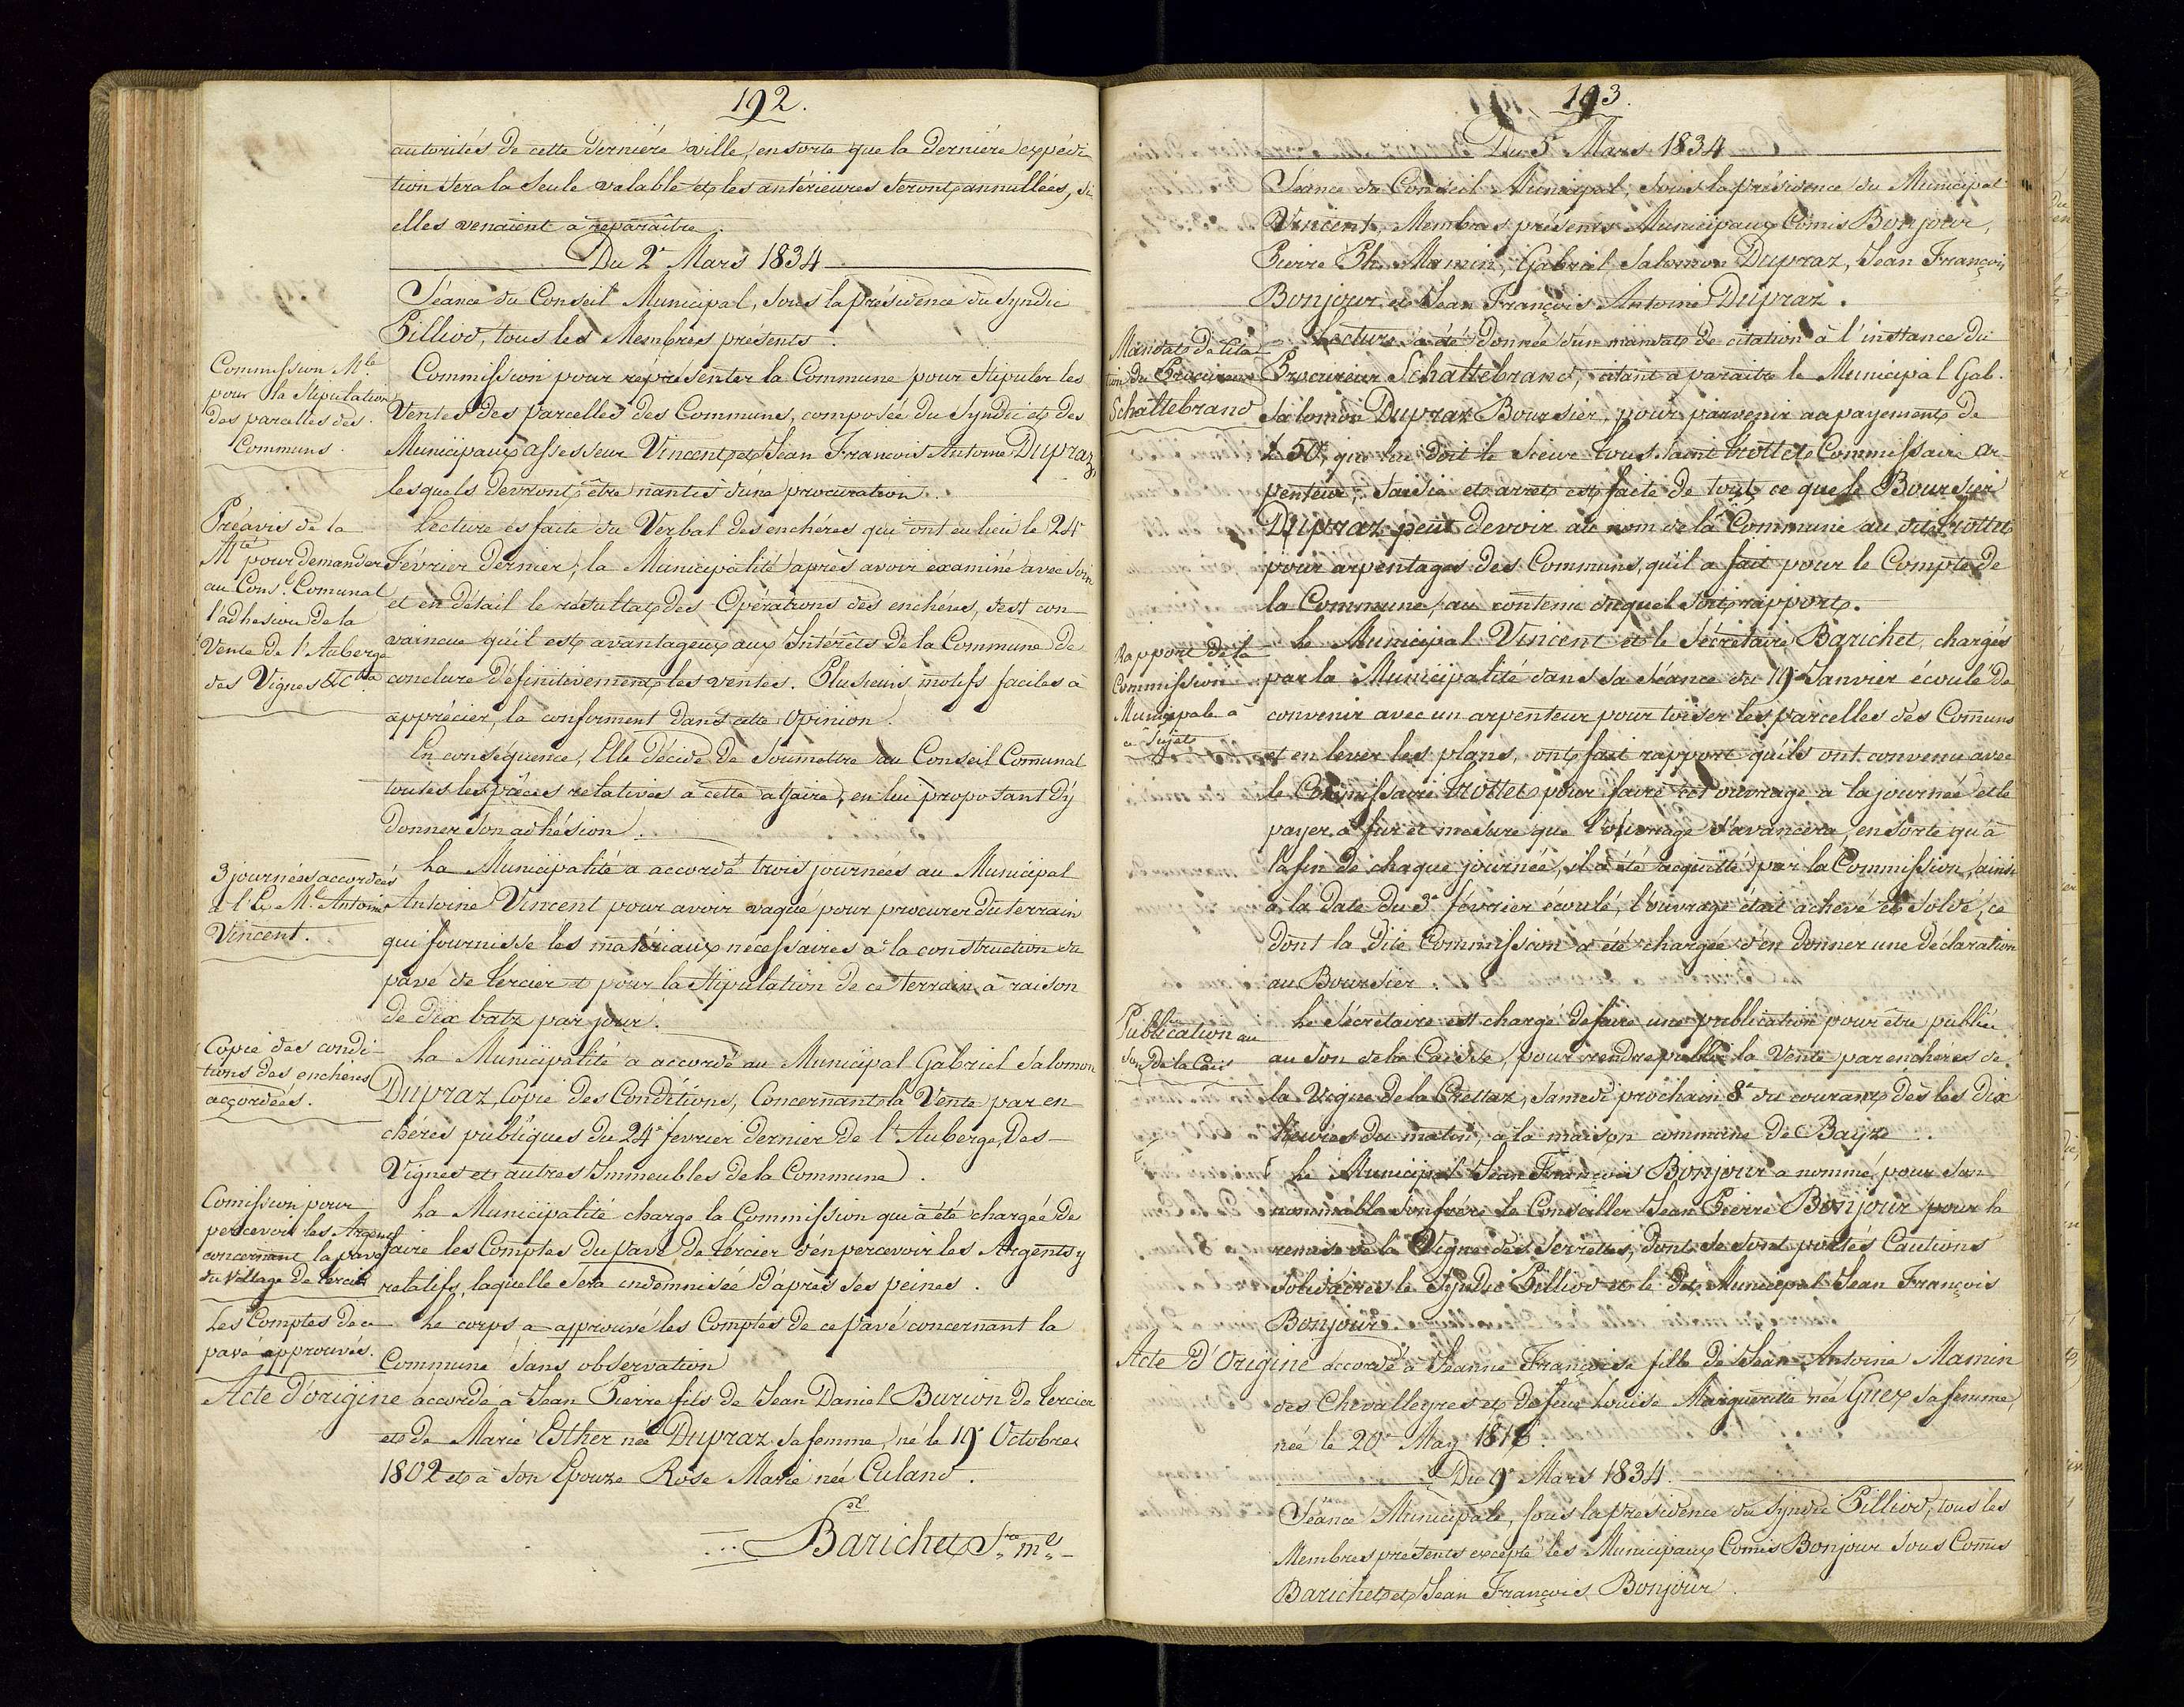 192.
autorités de cette dernière ville, ensorte que la dernière expédi
tion sera la seule valable et les antérieures seront annullées, si
elles venaient à reparaître.
Du 2e Mars 1834
Séance du Conseil Municipal, sous la présidence du Syndic
Pilliod, tous les Membres présents.
Commission Mle
pour la Stipulation
des parcelles des
Communs.
Commission pour répresenter la Commune pour stipuler les
Ventes des parcelles des Communs, composée du Syndic et des
Municipaux assesseur Vincent et Jean Francois Antoine Dupraz
lesquels devront être nantis d'une procuration.
Préavis de la
Mté pour demander
au Cons. Comunal
l'adhesion de la
Vente de l'Auberge
des Vignes &c
Lecture es faite du Verbal des enchéres qui ont eu lieu le 24e
Février dernier; la Municipalité après avoir examiné avec soin
et en détail le résultat des Opérations des enchéres, s'est con-
vaincue qu'il est avantageux aux Intérêts de la Commune de
conclure définitivement les ventes. Plusieurs motifs faciles à
apprécier, la conforment dans cette opinion.
En conséquence, Elle décide de soumettre au Conseil Comunal
toutes les pièces relatives à cette affaire, en lui proposant d'y
donner son adhésion.
3 journées accordées
à l'E. Ml. Antoine
Vincent.
La Municipalité a accordé trois journées au Municipal
Antoine Vincent pour avoir vaqué pour procurer du terrain
qui fournisse les matériaux necessaires à la construction du
pavé de Tercier et pour la Stipulation de ce terrain à raison
de dix batz par jour.
Copie des condi-
tions des enchéres
accordées.
La Municipalité a accordé au Municipal Gabriel Salomon
Dupraz, Copie des Conditions, Concernant la Vente par en
chéres publiques du 24e fevrier dernier de l'Auberge, des-
Vignes et autres Immeubles de la Commune.
Comission pour
percevoir les Argents
concernant la pavé
du Village de Tercier
La Municipalité charge la Commission qui a été chargée de
faire les Comptes du pavé de Tercier d'en percevoir les Argents y
relatifs, laquelle sera indemnisée d'après ses peines.
Les Comptes de ce
pavé approuvés.
Le corps a approuvé les Comptes de ce pavé concernant la
Commune sans observation
Acte d'origine accordé à Jean Pierre fils de Jean Daniel Burion de Tercier
et de Marie Esther née Dupraz sa femme, né le 19e Octobre
1802 et à son Epouze Rose Marie née Culand.
Barichet Sre Ml
193.
Du 5e Mars 1834
Séance du Conseil Municipal, sous la présidence du Municipal
Vincent, Membres présents Municipaux Comis Bonjour,
Pierre Ph. Mamin, Gabriel Salomon Dupraz, Jean François
Bonjour et Jean François Antoine Dupraz.
Mandat de Cita
tion du Procureur
Schattebrand
Lecture a été donnée d'un mandat de citation à l'instance du
Procureur Schattebrand, citant à paraitre le Municipal Gab.
Salomon Dupraz Boursier, pour parvenir au payement de
£ 50, que lui doit le Sieur Trottet Commissaire ar-
penteur; saisie et arret est faite de tout ce que le Boursier
Dupraz peut devoir au nom de la Commune au dit Trottet
pour arpentages des Communs, qu'il a fait pour le Compte de
la Commune, au contenu duquel soit rapport.
Rapport de la
Commission
Municipale à
ce Sujet
Le Municipal Vincent et le Sécretaire Barichet, chargés
par la Municipalité dans sa séance du 19e Janvier écoulé de
convenir avec un arpenteur pour toiser les parcelles des Comuns
et en lever les plans, ont fait rapport qu'ils ont convenu avec
le Commissaire Trottet pour faire cet ouvrage à la journée et le
payer à fur et mesure que l'ouvrage s'avancera, en sorte qu'à
la fin de chaque journée, il a été acquitté par la Commission, ainsi
à la date du 3e février écoulé, l'ouvrage était achevé et soldé, ce
dont la dite Commission a été chargée d'en donner une déclaration
au Boursier.
Publication au
Son de la Caiss
Le Sécrétaire est chargé de faire une publication pour être publiée
au son de la Caisse, pour rendre public la Vente par enchéres de
la Vigne de la Crettaz, Samedi prochain 8e du courant dès les dix
heures du matin, à la maison commune de Bayze.
Le Municipal Jean François Bonjour a nommé pour son
nommable son frère le Conseiller Jean Pierre Bonjour pour la
remise de la Vigne des Serrettes, dont se sont portés Cautions
Solidaires le Syndic Pilliod et le dit Municipal Jean François
Bonjour.
Acte d'Origine accordé à Jeanne Françoise fille de Jean Antoine Mamin
des Chevalleyres et de feue Louise Marguerite née Guex sa femme,
née le 20e May 1816.
Du 9e Mars 1834.
Séance Municipale, sous la présidence du Syndic Pilliod, tous les
Membres présents excepté les Municipaux Comis Bonjour Sous Comis
Barichet et Jean François Bonjour.